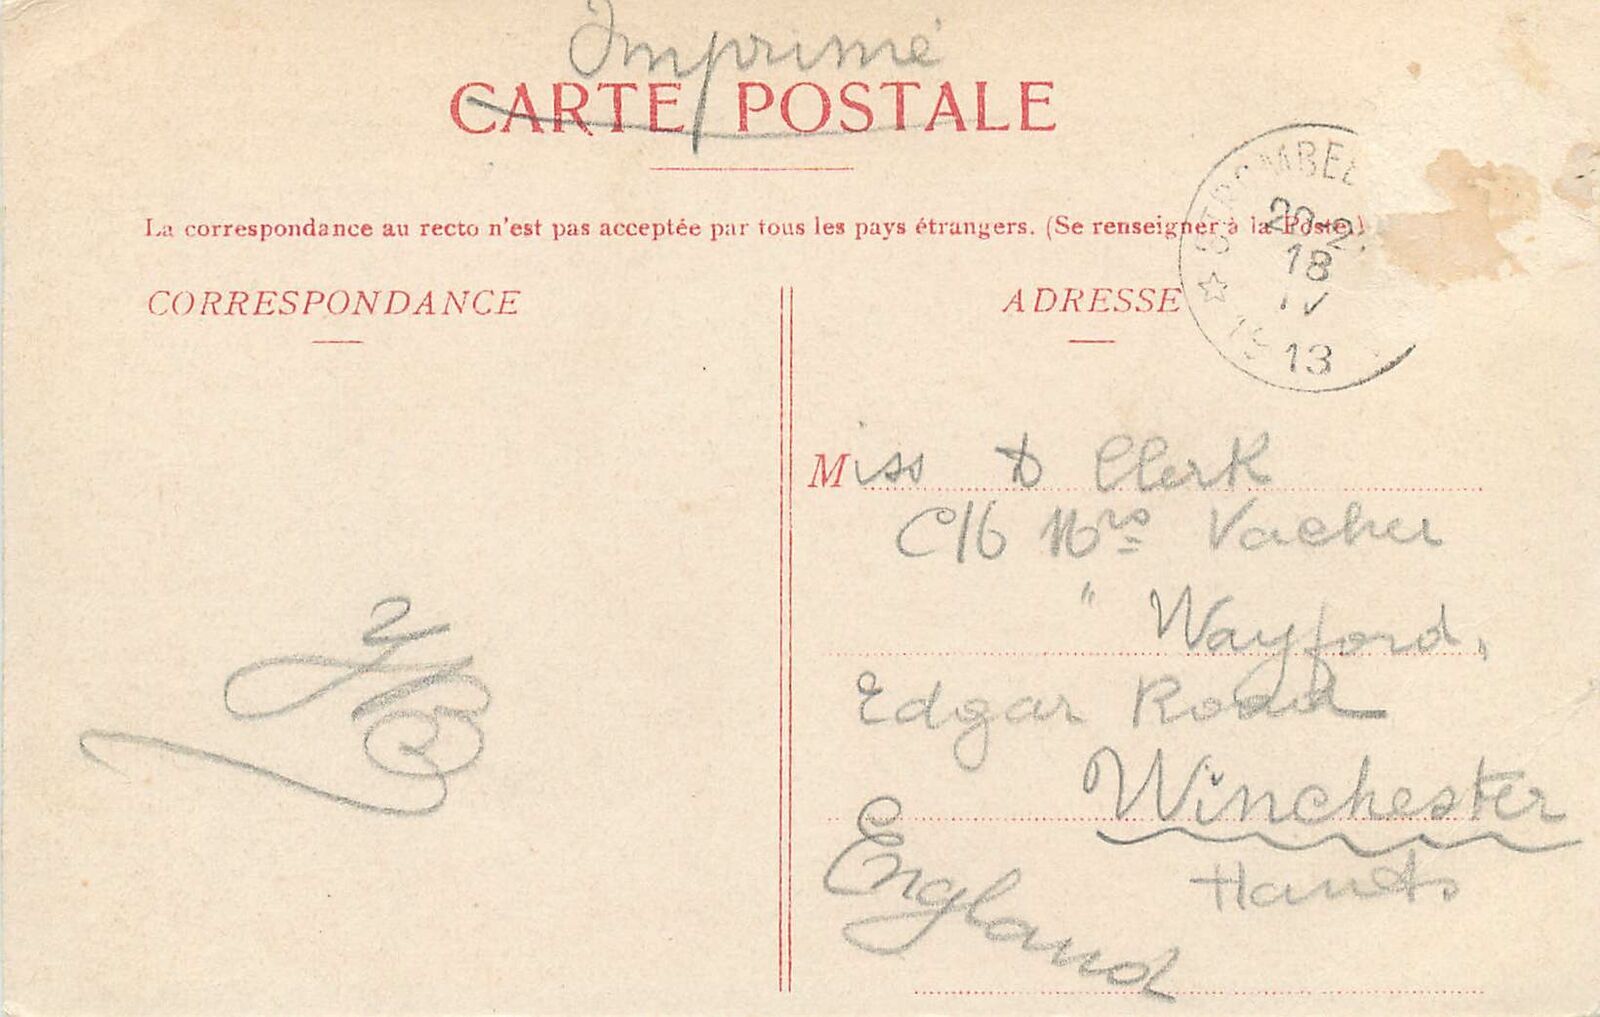 Imprimé
CARTE POSTALE
La correspondance au recto n'est pas acceptée par tous les pays étrangers. (Se renseigner à la Poste.)
CORRESPONDANCE
ADRESSE
STROMBEE
20-2
18
IV
1913
13
Miss D Clerk
C/o Mrs Vacher
" Wayford,
Edgar Road
Winchester
Hants
England